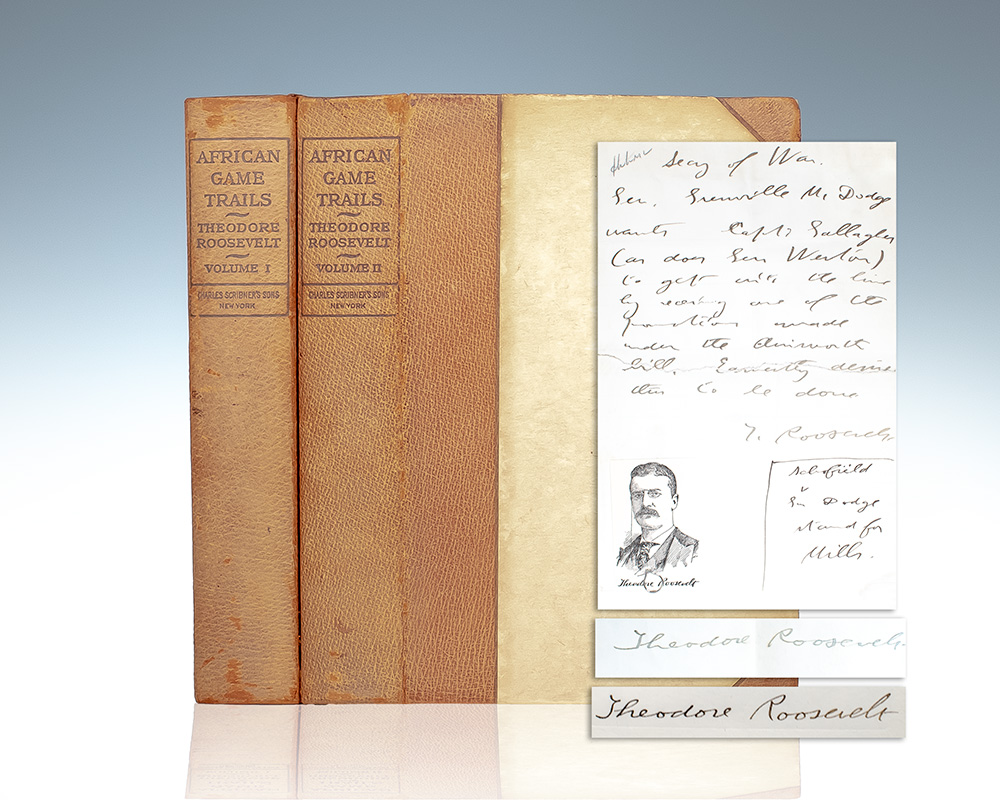 AFRICAN
GAME
TRAILS
THEODORE
ROOSEVELT
VOLUME I
CHARLES SCRIBNER'S SONS
NEW YORK
AFRICAN
GAME
TRAILS
THEODORE
ROOSEVELT
VOLUME II
CHARLES SCRIBNER'S SONS
NEW YORK
Secy of War.
Gen. Grenville M. Dodge
wants Capt. Gallagher
(as does Gen Weston)
to get into the line
by receiving one of the
made
under the Ainsworth
bill. Earnestly desire
this to be done
T. Roosevelt
Theodore Roosevelt
Schofield
Gen Dodge
stand for
Mills.
Theodore Roosevelt
Theodore Roosevelt